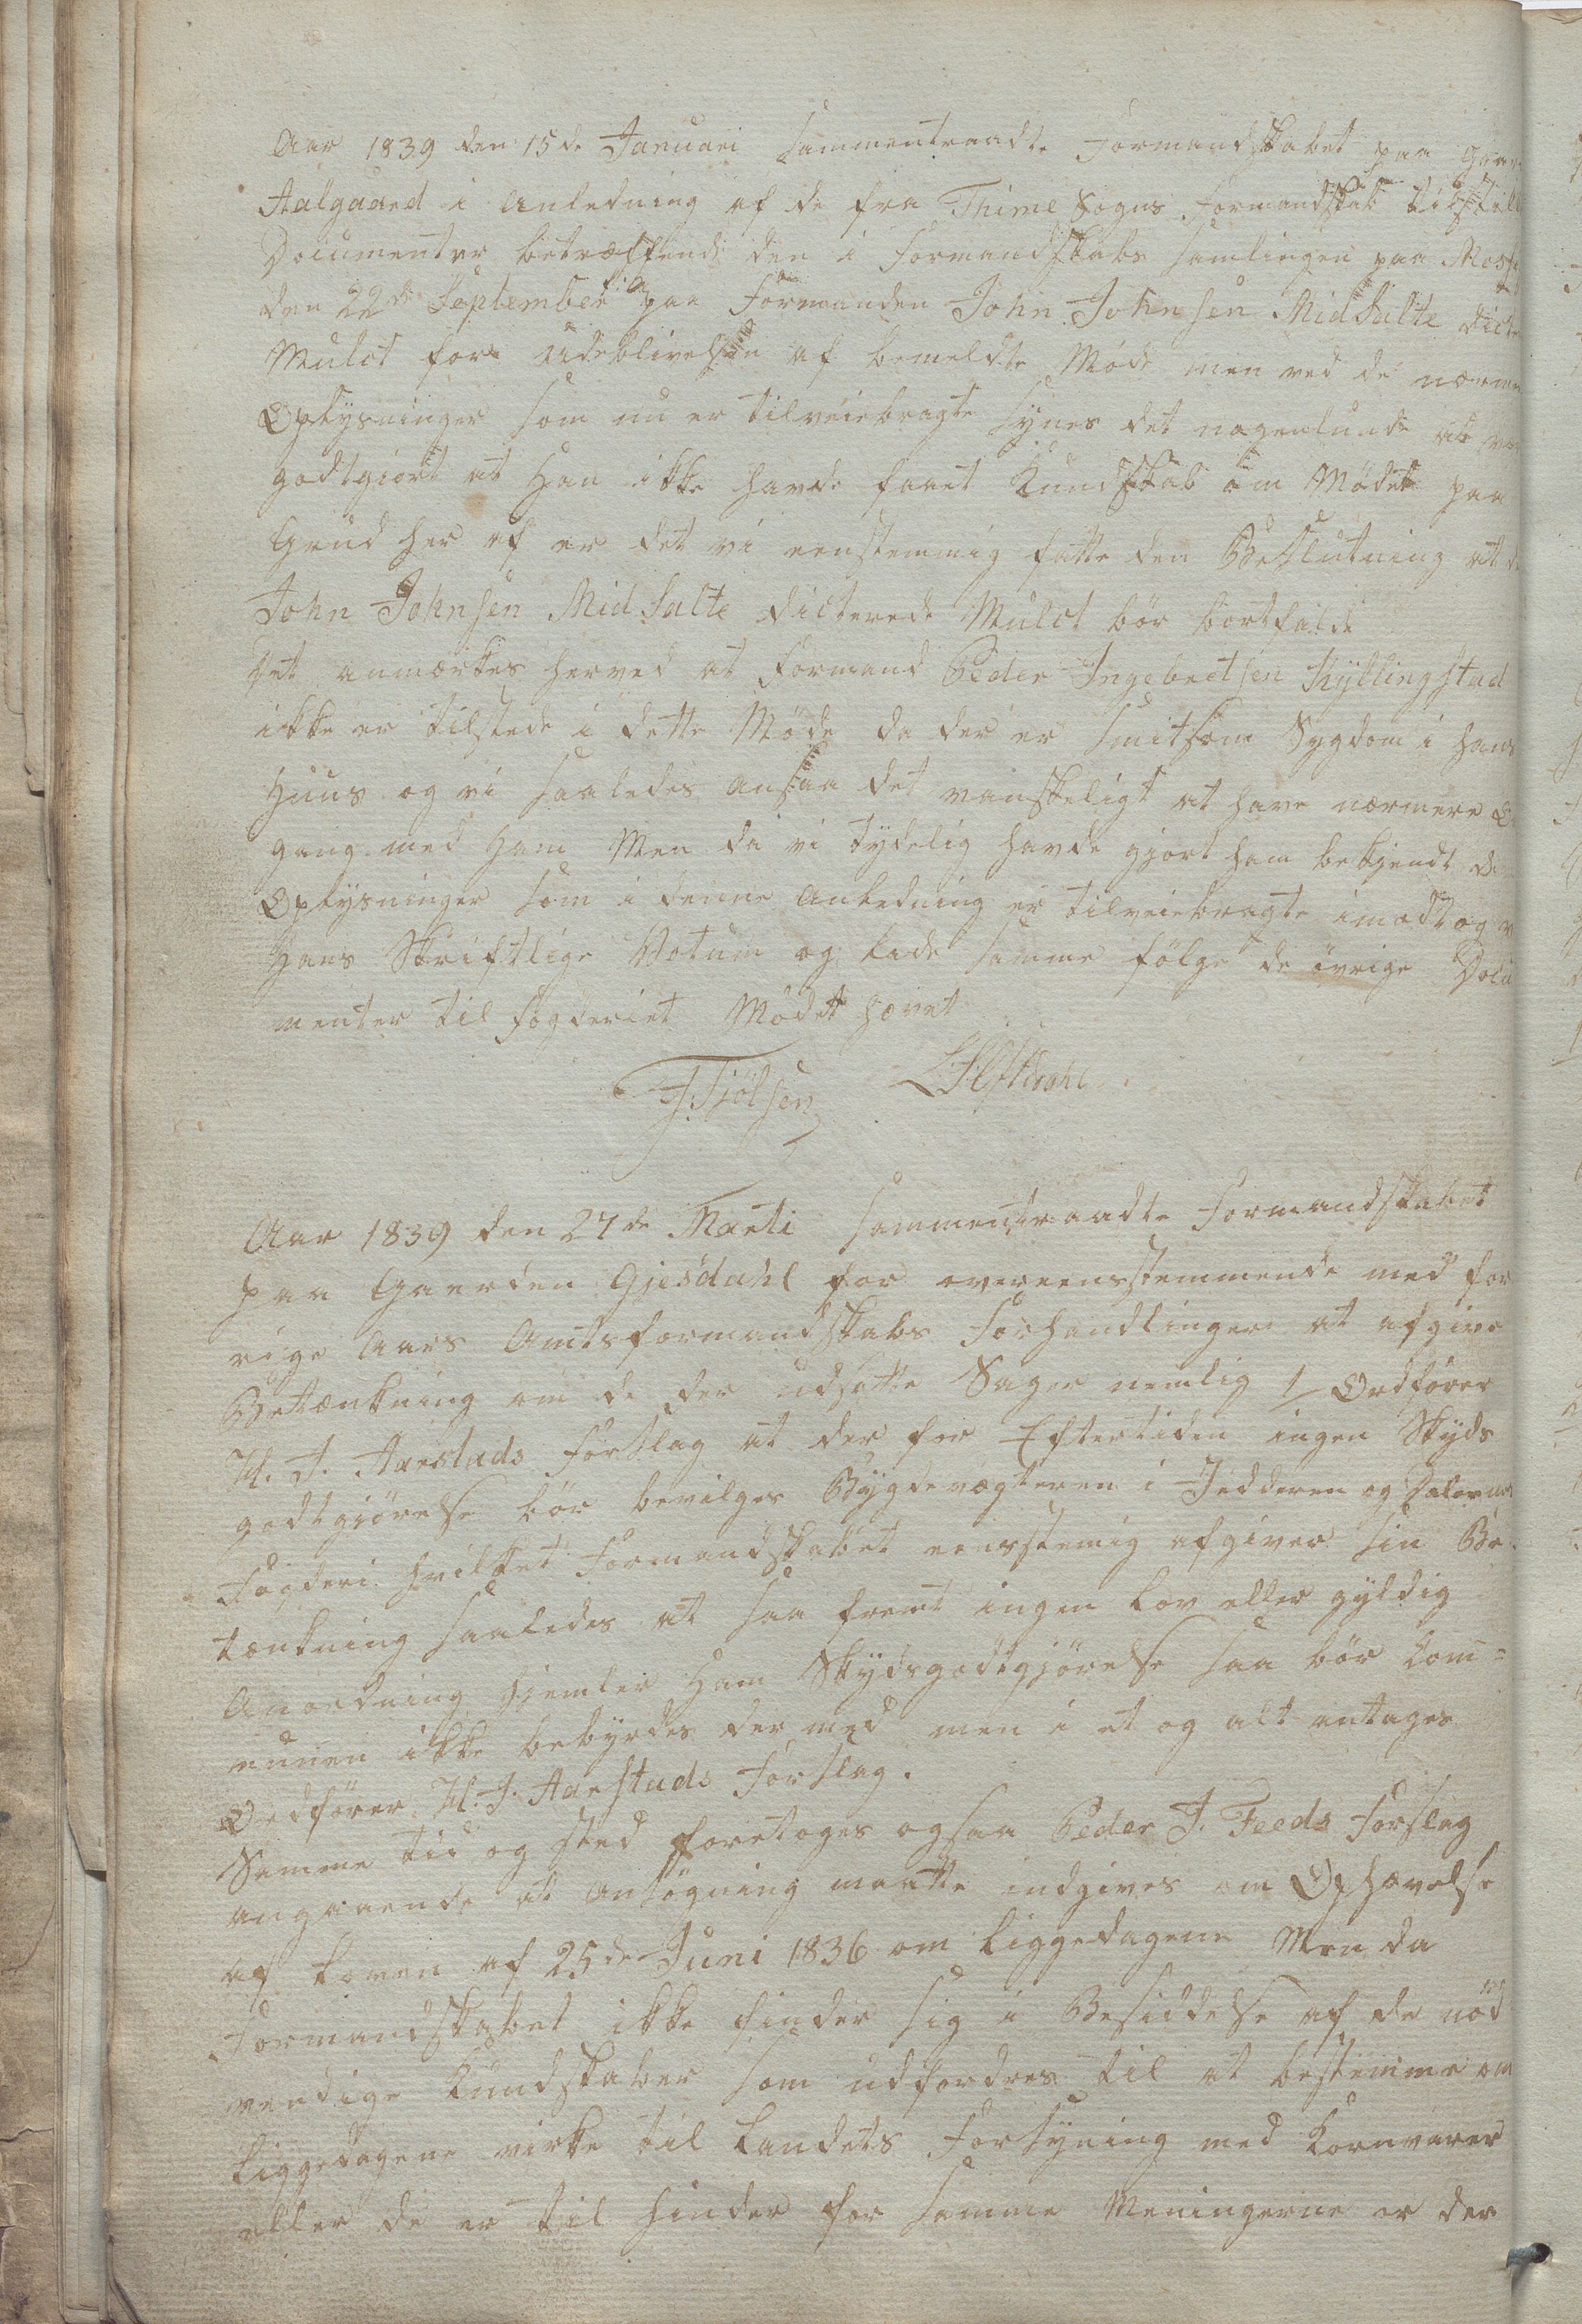 Aar 1839 den 15de Januari sammentraadte Formandskabet paa Gaar
Aalgaard i Anledning af de fra Thime Sogns Formandskab tilstill
Documenter betræffende den i Formandskabs samlingen paa
den 22de September f. A. paa Formanden John Johnsen Midtsalte dicte
Mulct for Udeblivelsen af bemeldte Møde men ved de nærme
Oplysninger som nu er tilveiebragte synes det nogenlunde at væ
godtgiort at Han ikke havde faaet Kundskab om Mødet paa
Grund her af er det vi eenstemmig fatte den Beslutning at d
John Johnsen Midsalte dicterede Mulct bør bortfalde
Det anmærkes herved at Formand Peder Ingebretsen Kyllingstad
ikke er tilstede i dette Møde da der er smitsom Sygdom i hans
Huus og vi saaledes ansaa det vanskeligt at have nærmere
gang med Ham Men da vi tydelig havde gjort ham bekjendt de
Oplysninger som i denne Anledning er tilveiebragte imodtog v
Hans Skriftlige Votum og lade samme følge de øvrige Docu
menter til Fogderiet Mødet hævet
Aar 1839 den 27de Marti sammentraadte Formandskabet
paa Gaarden Gjesdahl for overeensstemmende med for
rige Aars Amtsformandskabs Forhandlinger at afgive
Betænkning om de der udsatte Sager nemlig 1/ Ordfører
H. J. Aarstads Forslag at der for Eftertiden ingen Skyds
godtgjørelse bør bevilges Bygdevægteren i Jedderen og Dalernes
Fogderi hvilket Formandskabet eenstemig afgiver sin Be-
tænkning saaledes at saa fremt ingen Lov eller gyldig
Anordning hjemler Ham Skydsgodtgjørelse saa bør Com=
munen ikke bebyrdes dermed men i et og alt antages
Ordfører H. J. Aarstads Forslag.
Samme tid og sted foretoges ogsaa Peder J. Feeds Forslag
angaaende at Ansøgning maatte indgives om Ophævelse
af Loven af 25de Juni 1836 om Liggedagene Men da
Formandskabet ikke finder sig i Besiddelse af de nød
vendige Kundskaber som udfordres til at bestemme om
Liggedagene virke til Landets Forsyning med Kornvarer
eller de er til Hinder for samme Meningerne er der